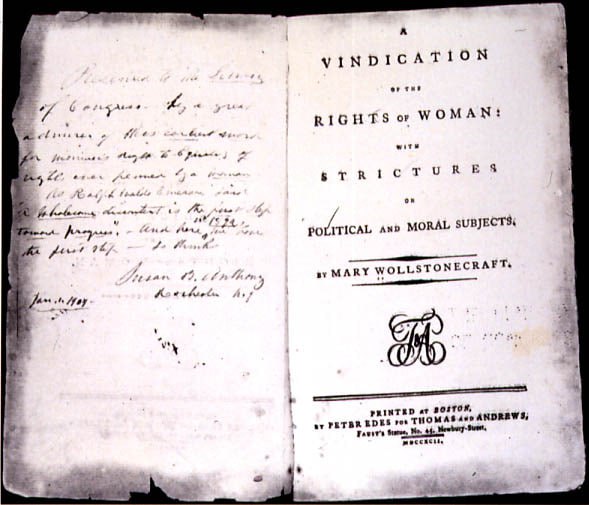 Presented to the Library
of Congress by a great
admirer of this earliest word
for woman's right to Equality of
rights ever penned by a woman
As Ralph Waldo Emerson said
"A wholesome discontent is the first step
toward progress." - And here in 1792 we have
the first step - so think
Susan B. Anthony
Rochester N.Y
Jan. 1. 1904.
A
VINDICATION
OF THE
RIGHTS OF WOMAN:
WITH
STRICTURES
ON
POLITICAL AND MORAL SUBJECTS.
BY MARY WOLLSTONECRAFT.
T&A
PRINTED AT BOSTON,
BY PETER EDES FOR THOMAS AND ANDREWS,
FAUST'S Statue, No. 45, Newbury-Street,
MDCCXCII.